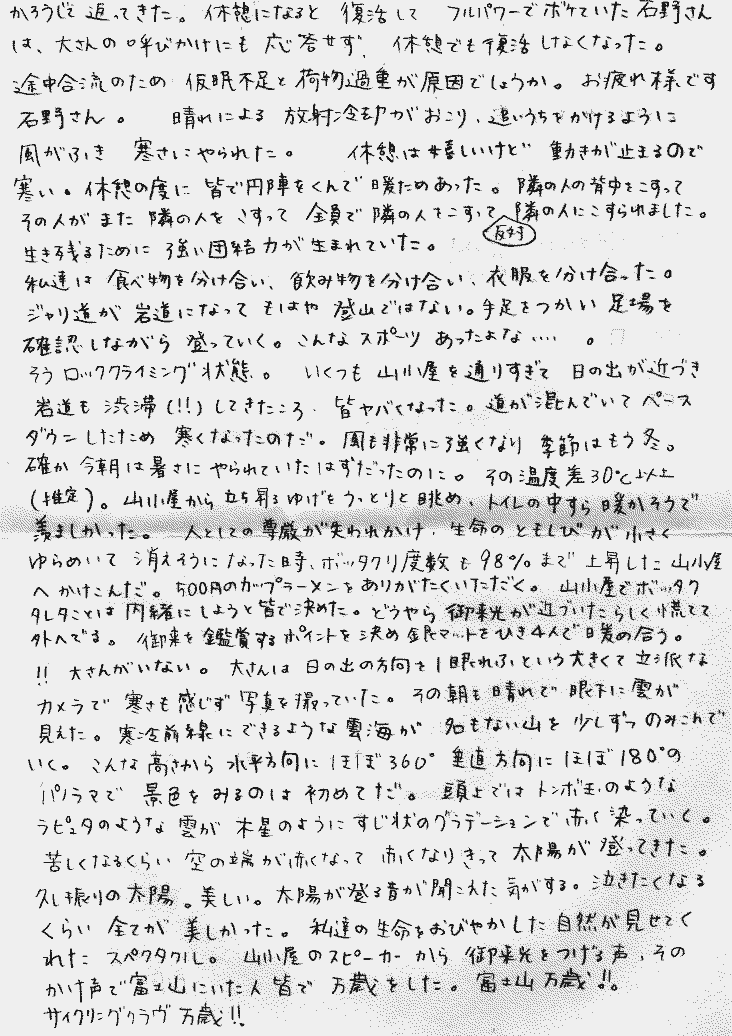 かろうじて返ってきた。休憩になると復活して フルパワーでボケていた石野さん
は、大さんの呼びかけにも応答せず、休憩でも復活しなくなった。
途中合流のため 仮眠不足と荷物過重が原因でしょうか。お疲れ様です
石野さん。 晴れによる 放射冷却がおこり、追いうちをかけるように
風がふき 寒さにやられた。 休憩は嬉しいけど 動きが止まるので
寒い。休憩の度に 皆で円陣をくんで暖ためあった。隣の人の背中をこすって
その人がまた 隣の人を こすって 全員で隣の人をこすって 隣の人にこすられました。
反対
生き残るために 強い団結力が生まれていた。
私達は 食べ物を分け合い、飲み物を分け合い、衣服を分け合った。
ジャリ道が 岩道になって もはや 登山ではない。手足をつかい 足場を
確認しながら 登っていく。こんな スポーツ あったよな‥‥ 。
そう ロッククライミング状態。 いくつも 山小屋を通りすぎて 日の出が近づき
岩道も 渋滞(!!)してきたころ、皆ヤバくなった。道が混んでいて ペース
ダウンしたため 寒くなったのだ。風も非常に強くなり 季節はもう冬。
確か 今朝は暑さに やられていたはずだったのに。その温度差30℃以上
(推定)。山小屋から 立ち昇る ゆげを うっとりと眺め、トイレの中すら 暖かそうで
羨ましかった。 人としての尊厳が失われかけ、生命のともしびが小さく
ゆらめいて 消えそうになった時、ボッタクリ度数も 98%まで 上昇した 山小屋
へ かけこんだ。500円のカップラーメンを ありがたくいただく。 山小屋でボッタク
タレタことは 内緒にしようと皆で決めた。どうやら 御来光が近づいたらしく慌てて
外へでる。 御来を鑑賞するポイントを決め 銀マットをひき4人で暖め合う。
!! 大さんがいない。大さんは 日の出の方向を1眼れふという大きくて立派な
カメラで 寒さも感じず 写真を撮っていた。その朝も晴れで 眼下に雲が
見えた。寒冷前線にできるような雲海が 名もない山を 少しずつ のみこんで
いく。こんな 高さから 水平方向に ほぼ360° 垂直方向に ほぼ180°の
パノラマで 景色を みるのは 初めてだ。 頭上では トンボ玉のような
ラピュタのような 雲が 木星のように すじ状のグラデーションで 赤く 染っていく。
苦しくなるくらい 空の端が赤くなって 赤くなりきって 太陽が 登ってきた。
久し振りの太陽。美しい。太陽が登る音が聞こえた気がする。泣きたくなる
くらい 全てが 美しかった。 私達の生命をおびやかした 自然が見せてく
れた スペクタクル。 山小屋のスピーカーから 御来光をつげる声、その
かけ声で富士山にいた人 皆で 万歳をした。富士山 万歳!!。
サイクリングクラヴ 万歳!!